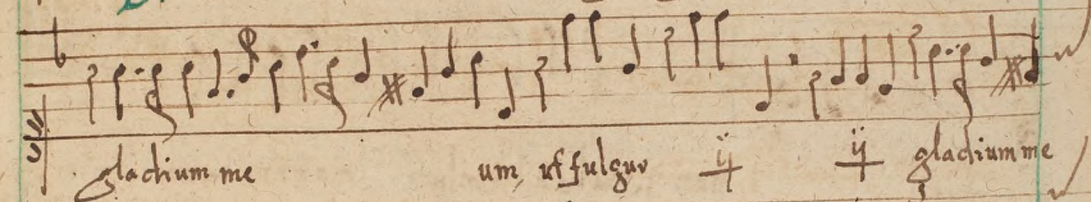 gladium me um, ut fulgur ij ij gladium me